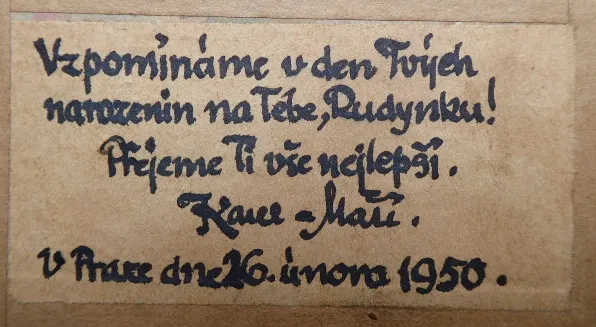 Vzpomínáme v den Tvých
narozenin na Tebe, Rudynku!
Přejeme Ti vše nejlepší.
- Máří.
V Praze dne 26. února 1950.